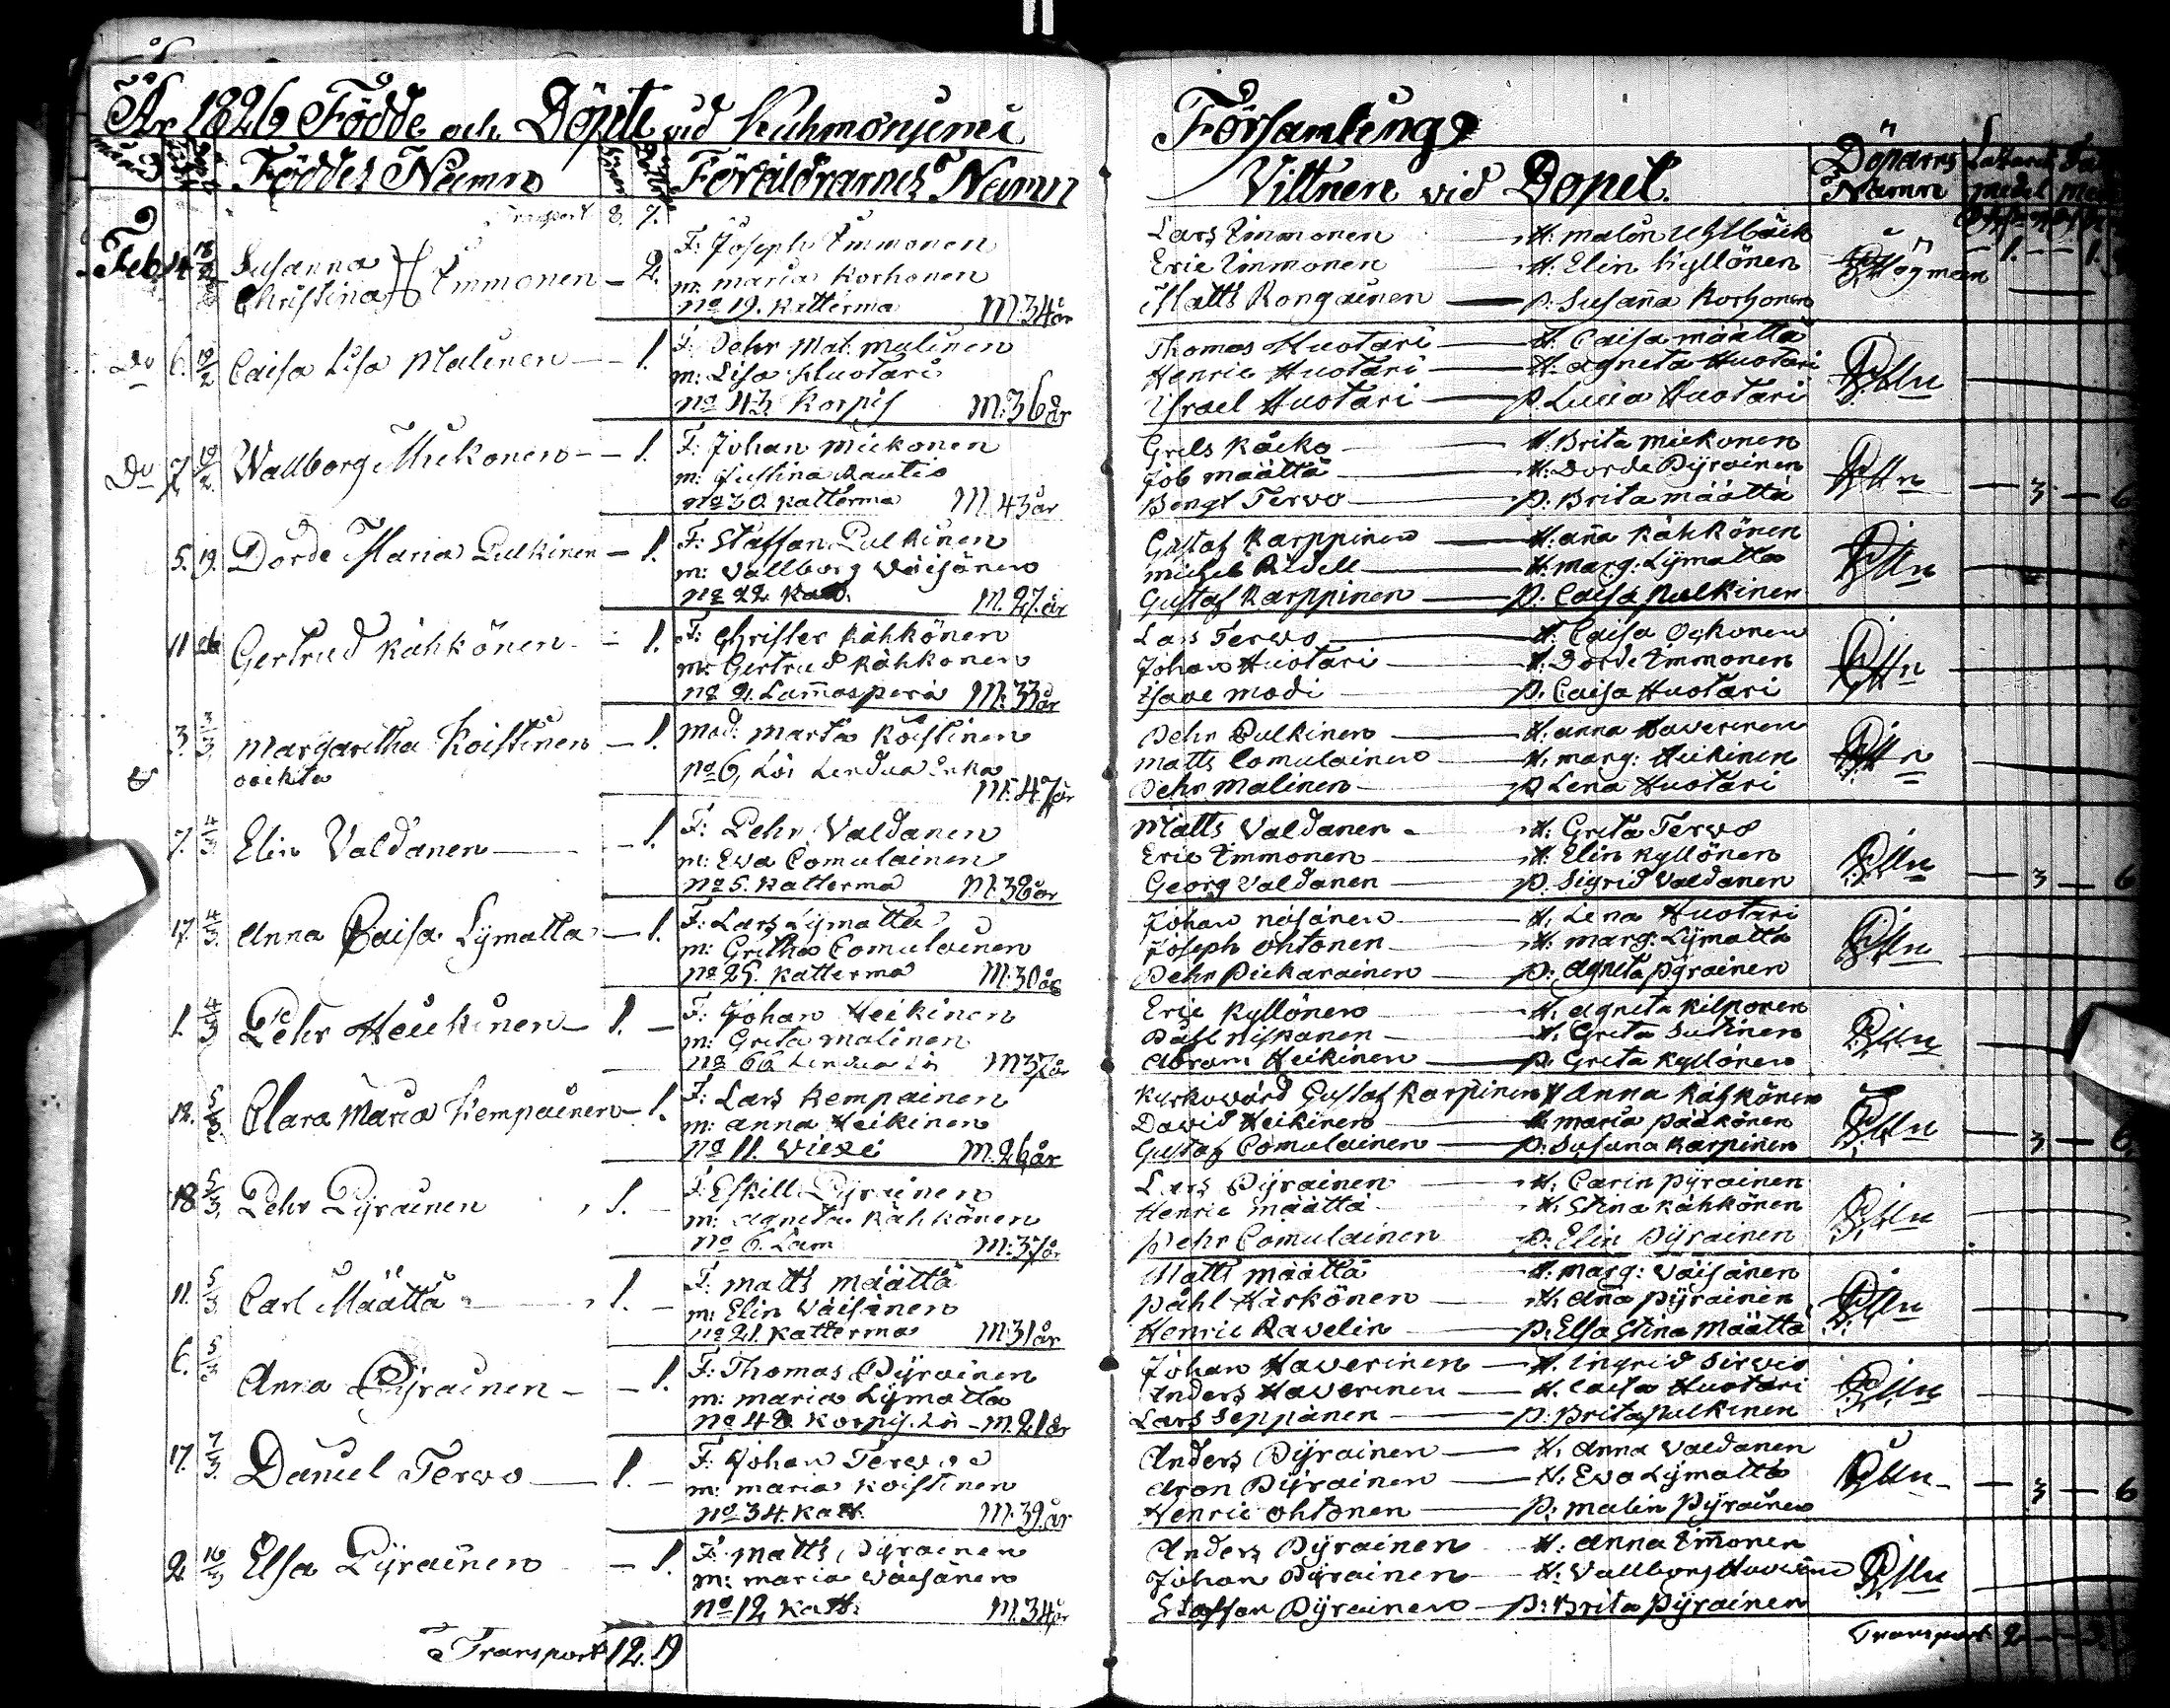 År 1826 Födde och Döpte vid Kuhmoniemi
Födde Döpte Föddes Namn Föräldrarnes Namn
Transport 8. 7.
Feb 14 18/2 Susanna Christina Immonen - 2.
F: Joseph Immonen
m: maria Korhonen
No 19. Katterma M: 34 år
Do 6. 19/2 Caisa Lisa Malinen - 1.
F: Pehr Mat. Malinen
m: Lisa Huotari
No 43 Korpij M: 36 år
Do 7 19/2 Wallborg Mickonen - 1.
F: Johan Mickonen
m: Justina Rautio
No 30. Katterma M. 43 år
5. 19. Dorde Maria Pulkinen - 1.
F: Staffan Pulkinen
m: Vallborg Väisänen
No 22 Katt. M. 27. år
11 26 Gertrud Kähkönen - 1.
F: Christer Kähkönen
m: Gertrud Kähkönen
No 21. Lam̅asperä M: 33 år
3. 3/3 Margaretha Koistinen - 1.
oächta
Mod: Marta Koistinen
No 6, Lör Lendua
M: 47 år
7. 4/3 Elin Valdanen - 1.
F: Pehr Valdanen
m: Eva Comulainen
No 5. Katterma M: 38 år
17. 4/3. Anna Caisa Lymatta - 1.
F: Lars Lymatta
m: Gretha Comulainen
No 25. Katterma M: 30 år
1. 4/3 Pehr Heikinen - 1. -
F: Johan Heikinen
m: Greta Malinen
No 66 Lendua Lör M 37 år
12. 5/3 Clara Maria Kempainen - 1.
F: Lars Kempainen
m: Anna Heikinen
No 11. Wiexi M. 26 år
18 5/3. Pehr Pyrainen 1. -
F: Eskill Pyrainen
m: Agneta Kähkönen
No 6. Lam M: 37 år
11. 5/3. Carl Määttä 1. -
F: Matts Määttä
m: Elin Väisänen
No 21. Katterma M: 31 år
6. 5/3 Anna Pyrainen - 1.
F: Thomas Pyrainen
m: maria Lymatta
No 48. Korpij. Lör - M. 21 år
17. 7/3. Daniel Tervo 1. -
F: Johan Tervo
m: maria Koistinen
No 34. Katt. M. 39. år
2. 16/3 Elsa Pyrainen - 1.
F: Matts Pyrainen
m: maria Väisänen
No 12 Katt. M. 34 år
Transport 12. 19
Församling
Vittnen vid Dopet. Döparens Namn
Lars Immonen - H: Malin Uhlbäck
Eric Immonen - H. Elin Kyllönen Högman - 1. - - 1.
Matts Rongainen - P. Susan̅a Korhonen
Thomas Huotari - H. Caisa Määttä
Henric Huotari - H. Agneta Huotari
Israel Huotari - P. Lucia Huotari
Grels Käcko - H. Brita Mickonen
Job Määttä - H: Dorde Pyrainen
Bengt Tervo - P. Brita Määttä - 3 - 6
Gustaf Karppinen - H. An̅a Kähkönen
Michel Ridell - H. Marg: Lymatta
Gustaf Karppinen - P. Caisa Pulkinen
Lars Tervo - H. Caisa Ockonen
Johan Huotari - H. Dorde Immonen
Isaac Modi - P. Caisa Huotari
Pehr Pulkinen - H. Anna Haverinen
Matts Comulainen - H. Marg: Heikinen
Pehr Malinen - P Lena Huotari
Matts Valdanen - H: Greta Tervo
Eric Immonen - H. Elin Kyllönen
Georg Valdanen - P. Sigrid Valdanen - 3 - 6
Johan Näsänen - H. Lena Huotari
Joseph Ohtonen - H. Marg: Lymatta
Pehr Pickarainen - P: Agneta Pyrainen
Eric Kyllönen - H. Agneta Kilponen
Påhl Niskanen - H. Greta Sutinen
Abram Heikinen - P. Greta Kyllönen
Kyrkovärd Gustaf Karpinen H Anna Kähkönen
David Heikinen - H Maria Pääkönen
Gustaf Comulainen - P: Susana Karpinen - 3 - 6
Lars Pyrainen - H. Carin Pyrainen
Henric Määttä - H. Stina Kähkönen
Pehr Comulainen - P: Elin Pyrainen
Matts Määttä - H. Marg: Väisänen
Påhl Härkönen - H. An̅a Pyrainen
Henric Ravelin - P: Elsa Stina Määttä
Johan Haverinen - H. Ingrid Sirviö
Anders Haverinen - H. Caisa Huotari
Lars Seppänen - P. Brita Pulkinen
Anders Pyrainen - H. Anna Valdanen
Aron Pyrainen - H. Eva Lymatta
Henric Ohtonen - P: Malin Pyrainen - 3 - 6
Anders Pyrainen H. Anna Im̅onen
Johan Pyrainen - H. Vallborg
Staffan Pyrainen - P: Brita Pyrainen
Transport 2 - 3.